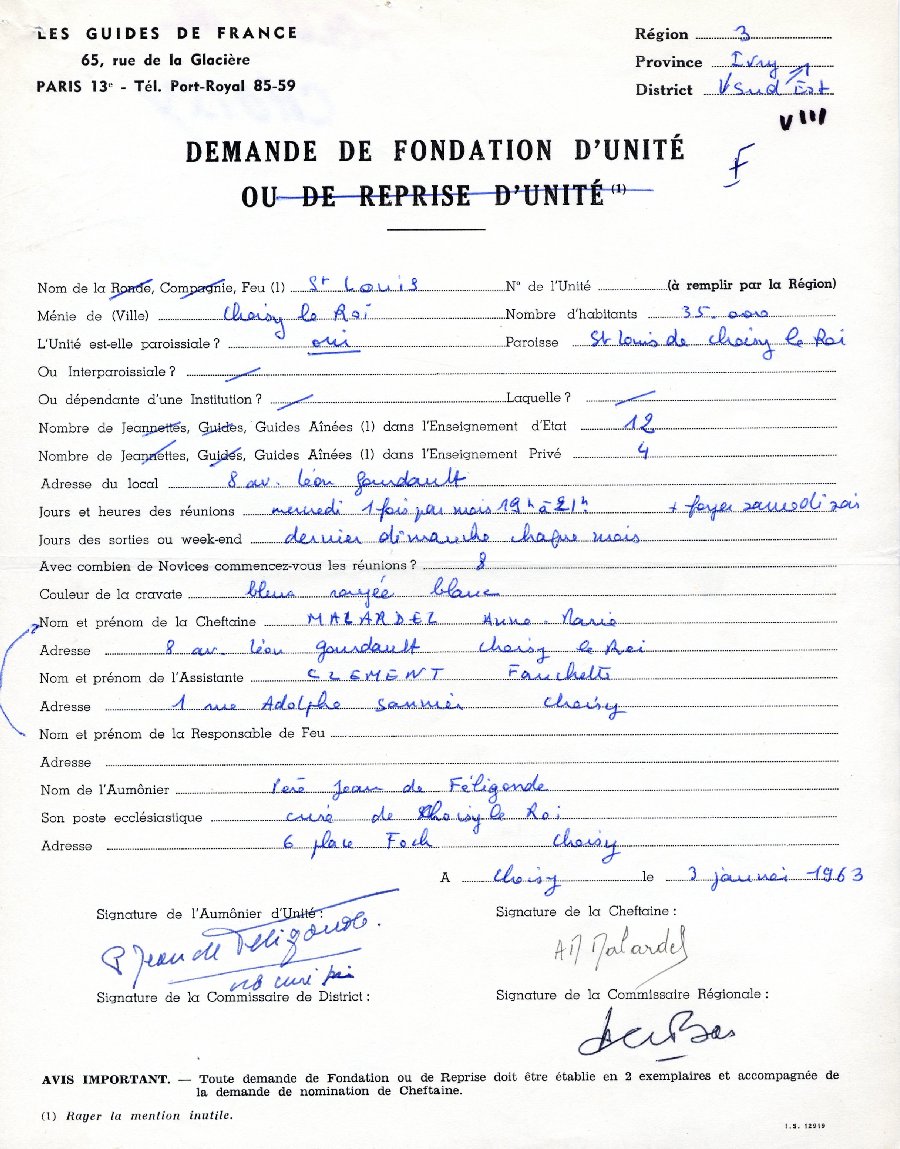 LES GUIDES DE FRANCE
65, rue de la Glacière
PARIS 13e - Tél. Port-Royal 85-59
Région 3
Province Ivry
District V Sud Est
VIII
F
DEMANDE DE FONDATION D'UNITÉ
OU DE REPRISE D'UNITÉ (1)
Nom de la Ronde, Compagnie, Feu (1) St Louis N° de l'Unité (à remplir par la Région)
Ménie de (Ville) Choisy le Roi Nombre d'habitants 35.000
L'Unité est-elle paroissiale ? oui Paroisse St Louis de Choisy le Roi
Ou Interparoissiale ?
Ou dépendante d'une Institution ? Laquelle ?
Nombre de Jeannettes, Guides, Guides Aînées (1) dans l'Enseignement d'Etat 12
Nombre de Jeannettes, Guides, Guides Aînées (1) dans l'Enseignement Privé 4
Adresse du local 8 av. Léon Gourdault
Jours et heures des réunions mercredi 1 fois par mois 19h à 21h + foyer samedi soir
Jours des sorties ou week-end dernier dimanche chaque mois
Avec combien de Novices commencez-vous les réunions ? 8
Couleur de la cravate bleue rayée blanc
Nom et prénom de la Cheftaine MALARDEL Anne-Marie
Adresse 8 av. Léon Gourdault Choisy le Roi
Nom et prénom de l'Assistante CLEMENT Fanchette
Adresse 1 rue Adolphe Sannier Choisy
Nom et prénom de la Responsable de Feu
Adresse
Nom de l'Aumônier Père Jean de Féligonde
Son poste ecclésiastique curé de Choisy le Roi
Adresse 6 place Foch Choisy
A Choisy le 3 janvier 1963
Signature de l'Aumônier d'Unité :
Signature de la Cheftaine :
P Jean de Féligonde.
AM Malardel
curé
Signature de la Commissaire de District :
Signature de la Commissaire Régionale :
AVIS IMPORTANT. — Toute demande de Fondation ou de Reprise doit être établie en 2 exemplaires et accompagnée de
la demande de nomination de Cheftaine.
(1) Rayer la mention inutile.
I.S. 12919